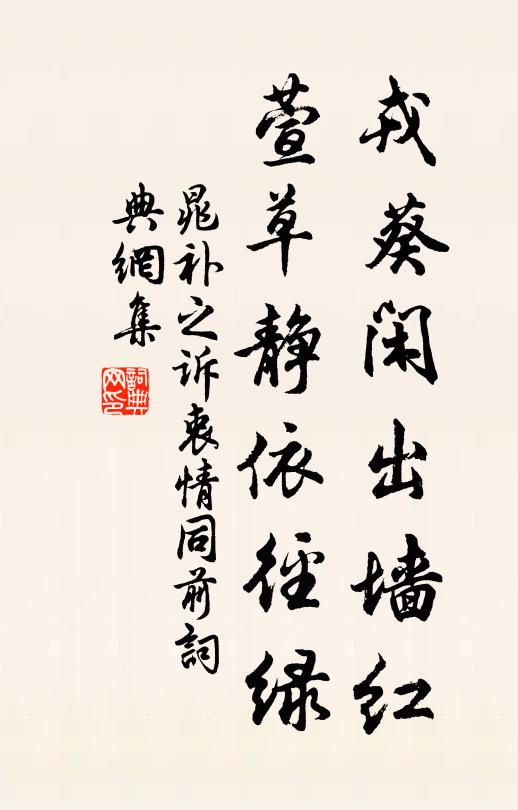 戎葵闲出墙红
萱草静依徑绿
晁补之诉衷情同前詞
典網集
詞典网印